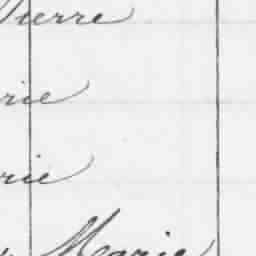 Pierre
rie
rie
Marie